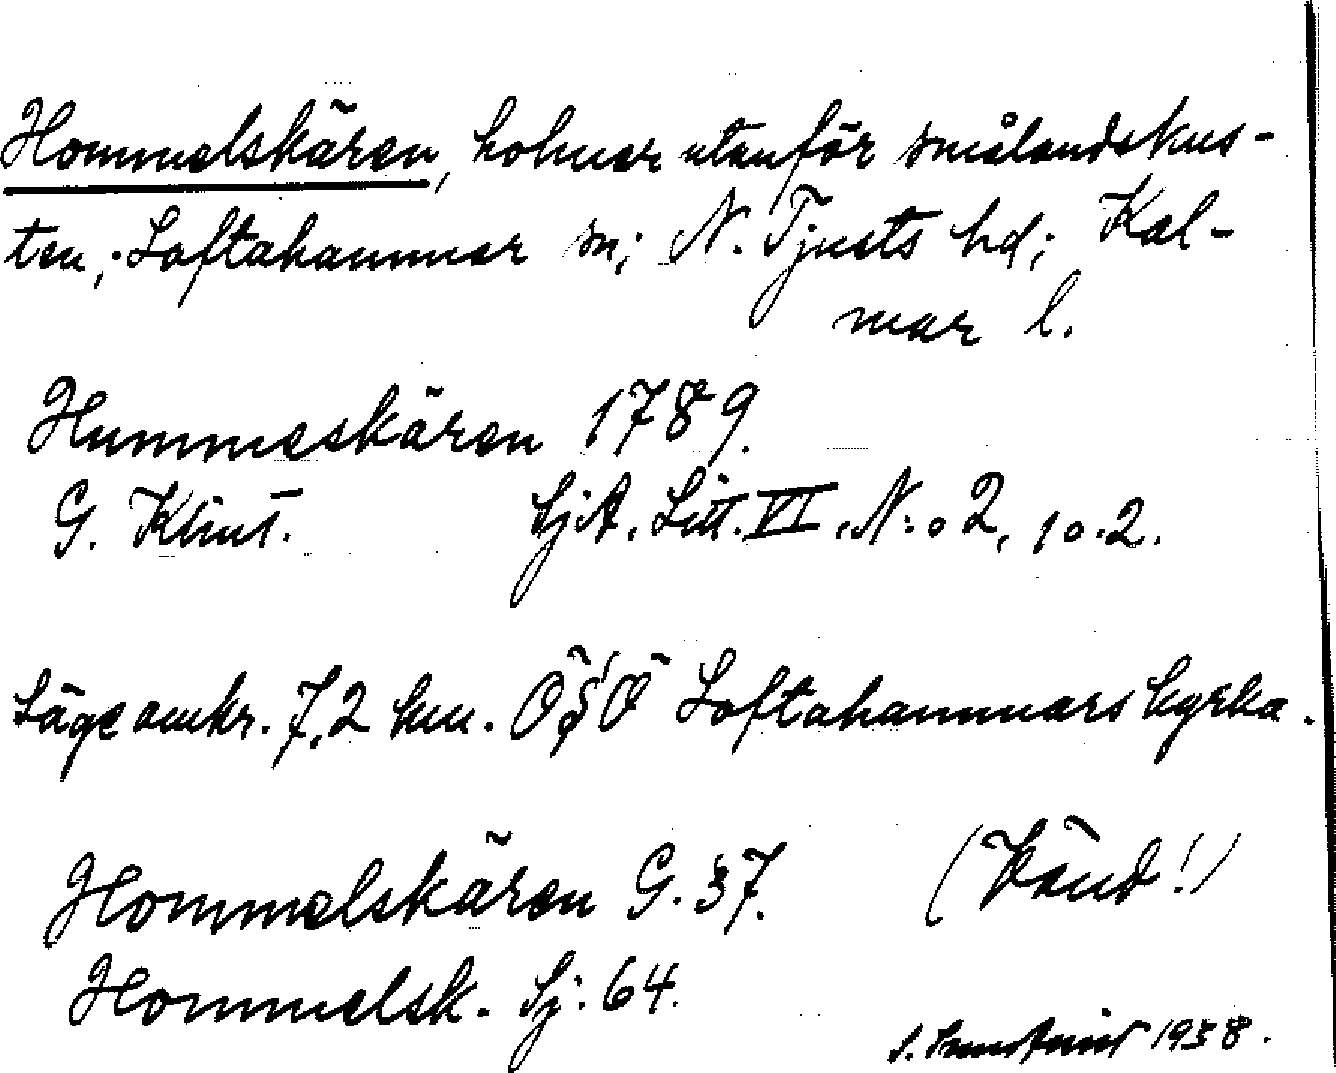 Hommelskären, holmar utanför smålandskus-
ten, Loftahammar sn; N. Tjusts hd; Kal-
mar l.
Hummeskären 1789.
G. Klint. SjA. Litt. VI. N:o 2, 10.2.
Läge omkr. 7,2 km. ÖSÖ Loftahammars kyrka.
Hommelskären G. 37. (Vänd!)
Hommelsk. Sj. 64.
1938.